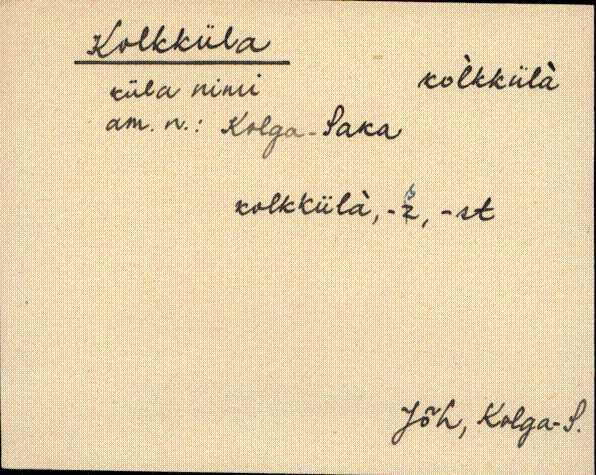 Kolkküla
küla nimi kòlkkülà
am. n.: Kolga-Saka
kolkkülà, -z, -st
Jõh, Kolga-S.